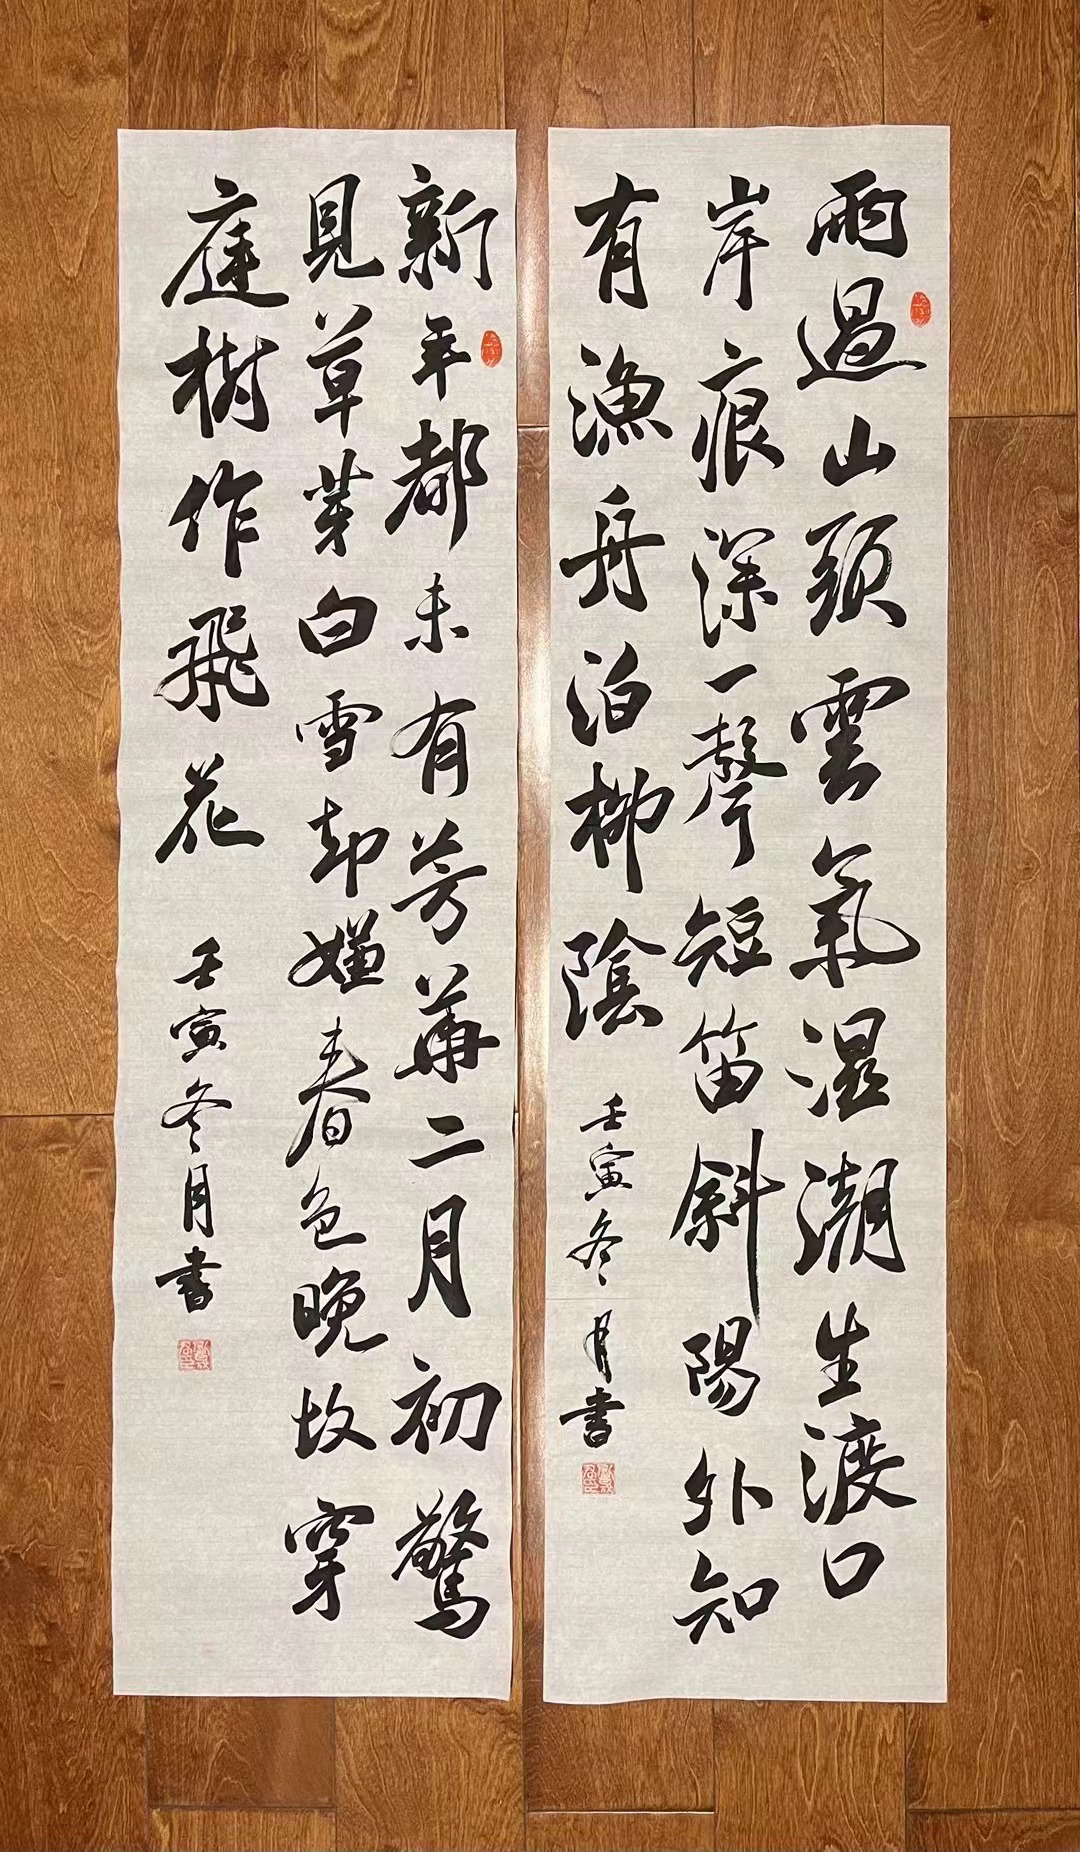 雨過山頭雲氣濕潮生渡口
岸痕深一聲短笛斜陽外知
有漁舟泊柳陰
壬寅冬月書
新年都未有芳華二月初驚
見草芽白雪却嫌春色晚故穿
庭樹作飛花
壬寅冬月書